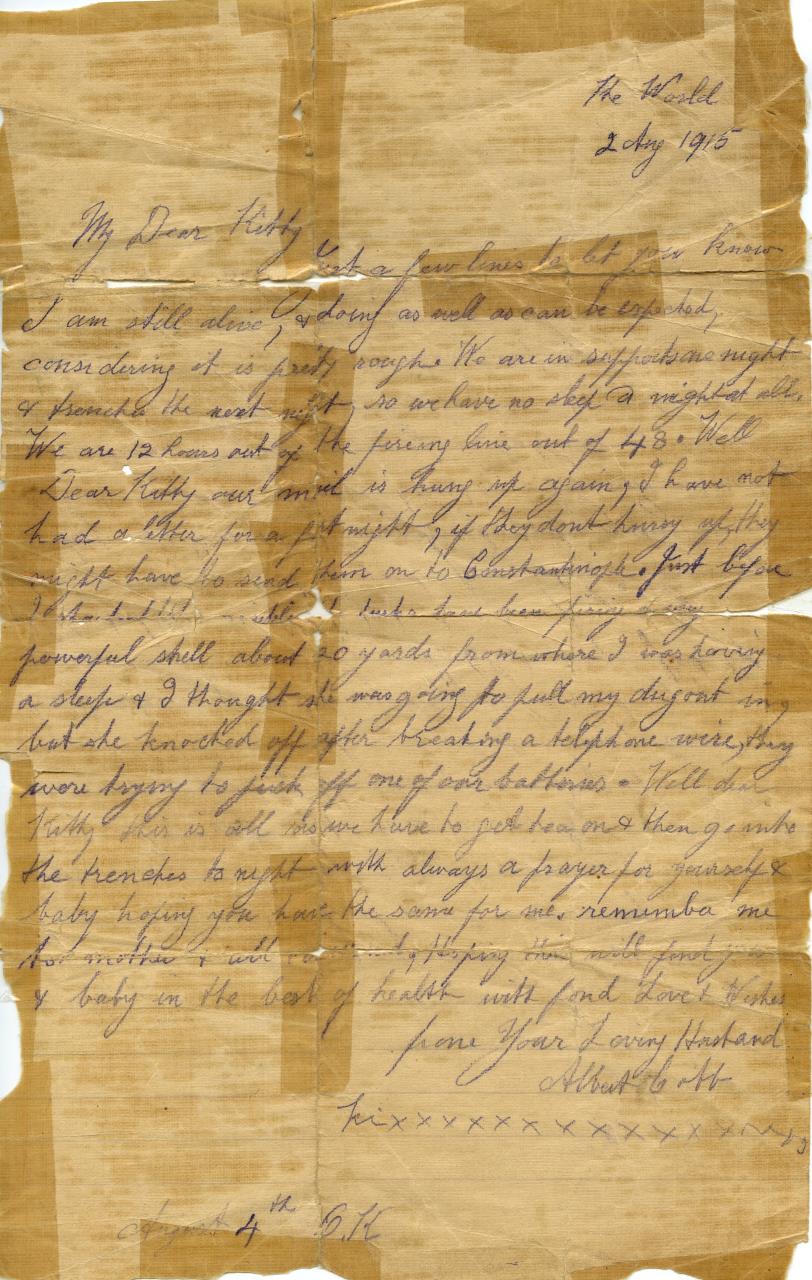 The World
2 Aug 1915
My Dear Kitty
Just a few lines to let you know
I am still alive, & doing as well as can be expected,
considering it is pretty rough. We are in supports one night
& trenches the next night, so we have no sleep a night at all.
We are 12 hours out of the fireing line out of 48. Well
Dear Kitty our mail is hung up again, I have not
had a letter for a fortnight, if they dont hurry up, they
might have to send them on to Constantinople. Just before
I turks have been firing a very
powerful shell about 20 yards from where I was having
a sleep & I thought she was going to pull my dugout in,
but she knocked off after breaking a telephone wire, they
were trying to pick off one of our batteries. Well dear
Kitty this is all as we have to get tea on & then go into
the trenches to night with always a prayer for yourself &
baby hoping you have the same for me. rememba me
to mother & will Hoping this will find you
& baby in the best of health with fond Love & Wishes
from Your Loving Husband
Albert Cobb
Kixxxxxxxxxxxxx
August 4th O.K